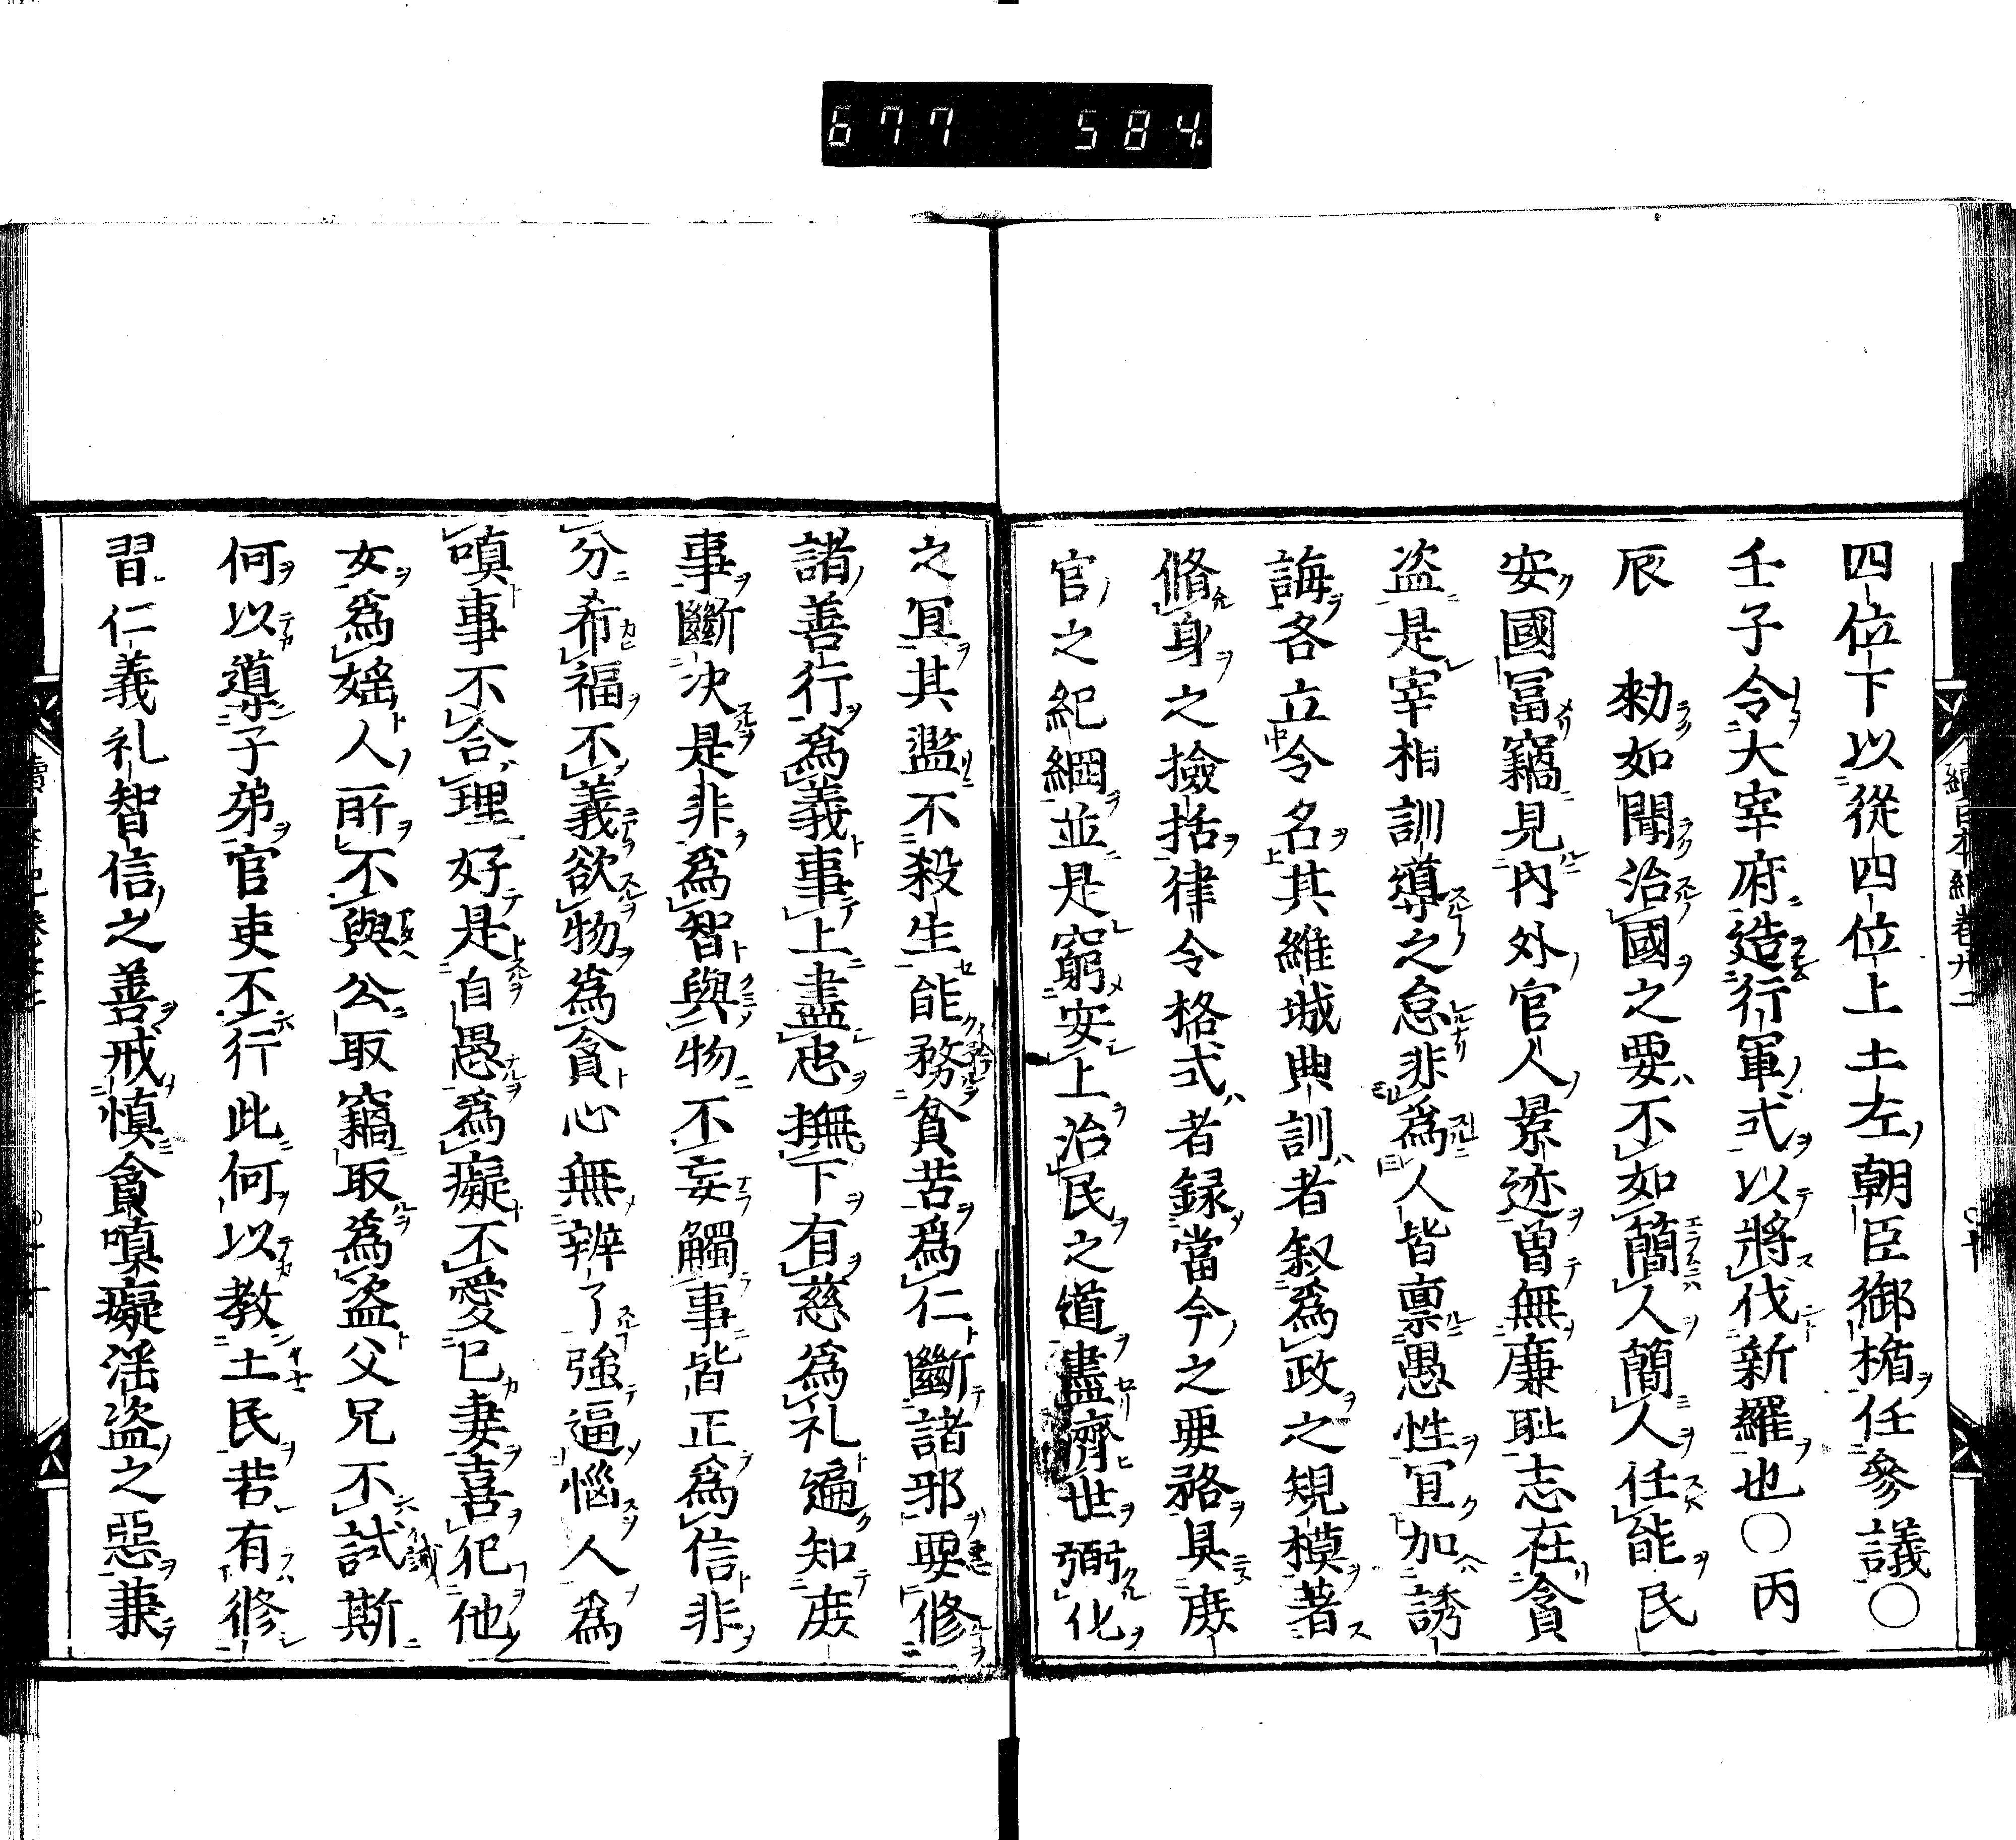 677 584
四位下以從四位上土左朝臣御楯任參議○
壬子令大宰府造行軍式以將伐新羅也○丙
辰 勑如聞治國之要不如簡人簡人任能民
安國冨竊見内外官人景迹曽無廉耻志在貪
盗是宰相訓導之怠非為人皆禀愚性宜加誘
誨各立令名其維城典訓者叙為政之規模著
脩身之撿括律令格式者録當今之要務具庻
官之紀綱並是窮安上治民之道盡濟世弼化
之冝其濫不殺生能務貧苦為仁斷諸邪要修
諸善行為義事上盡忠撫下有慈為礼遍知庻
事斷决是非為智與物不妄觸事皆正為信非
分希福不義欲物為貪心無辨了強逼惱人為
嗔事不合理好是自愚為癡不愛己妻喜犯他
女為婬人所不與公取竊取為盗父兄不試斯
何以導子弟官吏不行此何以教士民若有修
習仁義礼智信之善戒慎貪嗔癡淫盗之惡兼